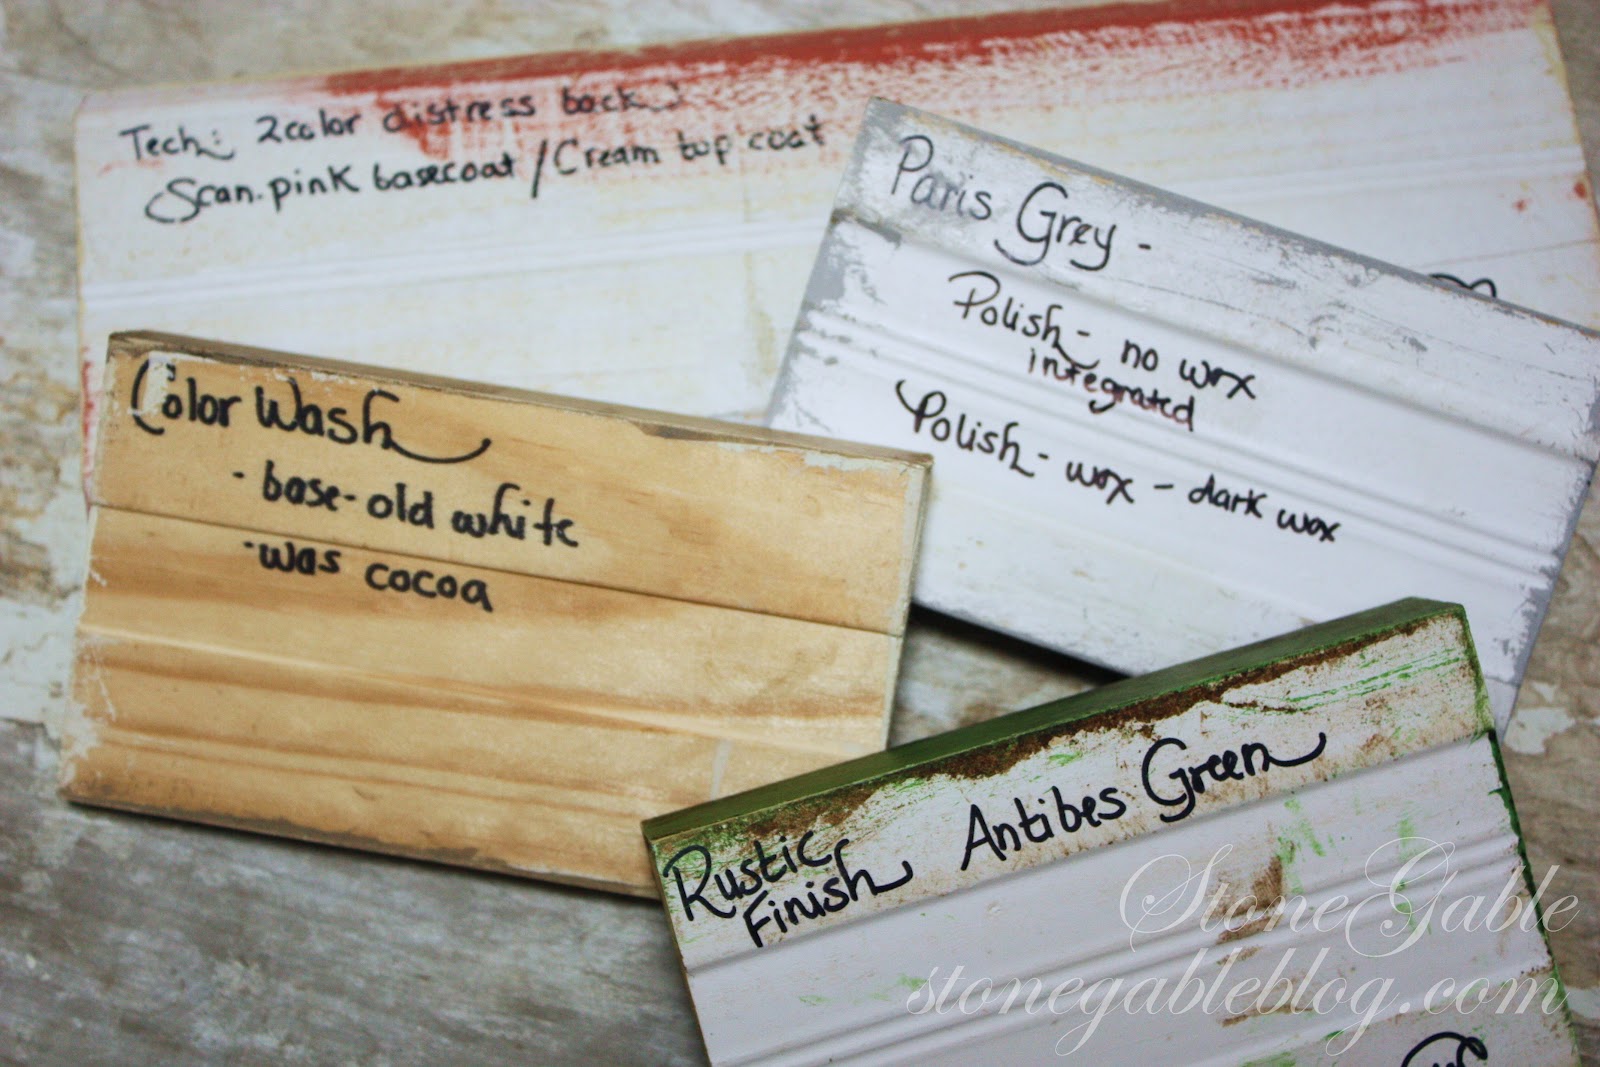 Tech: 2color distress back
Scan.pink basecoat / Cream top coat
Paris Grey -
Polish - no wax
integrated
Polish - wax - dark wax
Color Wash
- base - old white
- was cocoa
Rustic
Finish
Antibes Green
StoneGable
stonegableblog.com